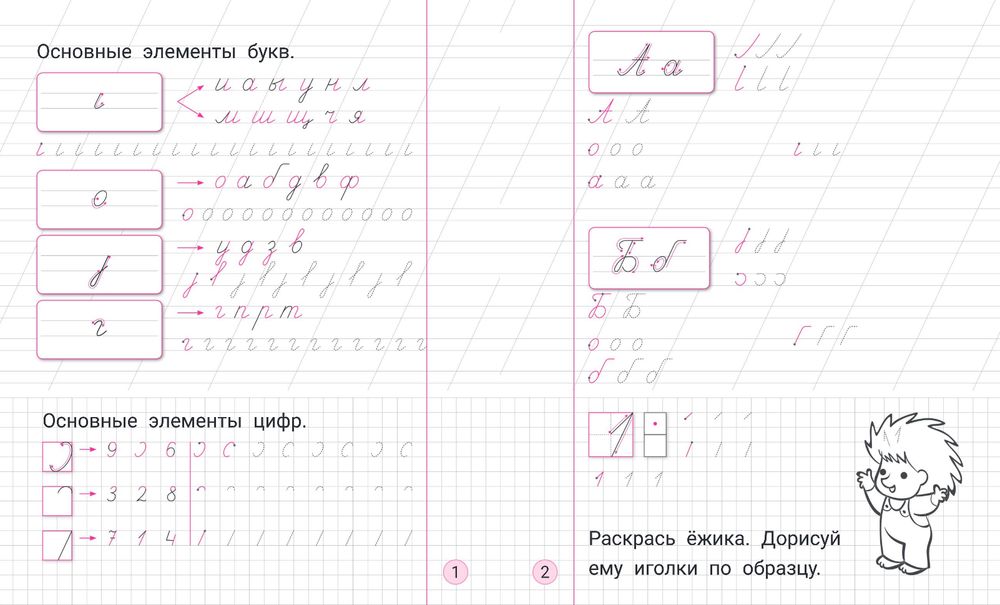 Основные элементы букв.
и а ы у н л
м ш щ ч я
о а б д в ф
у д з в
г п р т
Основные элементы цифр.
9 6
3 2 8
7 1 4
1
А а
А А
о о о
а а а
Б б
Б Б
о о о
б б б
1
1 1 1
Раскрась ёжика. Дорисуй
ему иголки по образцу.
2